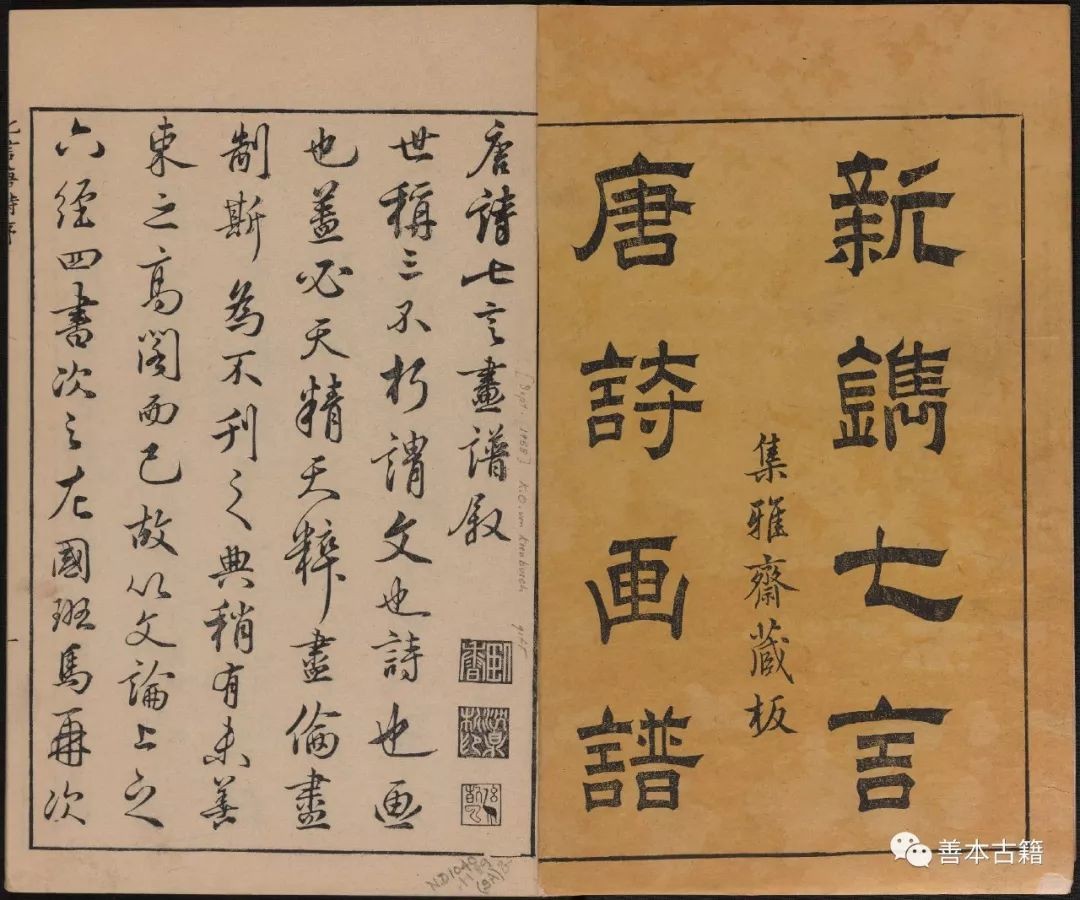 新鐫七言
集雅齋藏板
唐詩画譜
唐詩七言畫譜叙
世稱三不朽謂文也詩也画
也盖必天精天粹盡倫盡
制斯為不刊之典稍有未善
束之高閣而已故以文論上之
六經四書次之左國班馬再次
七言唐詩序
一
[Sept. 1968] K.O. von Kienbusch gift
ND1040
善本古籍